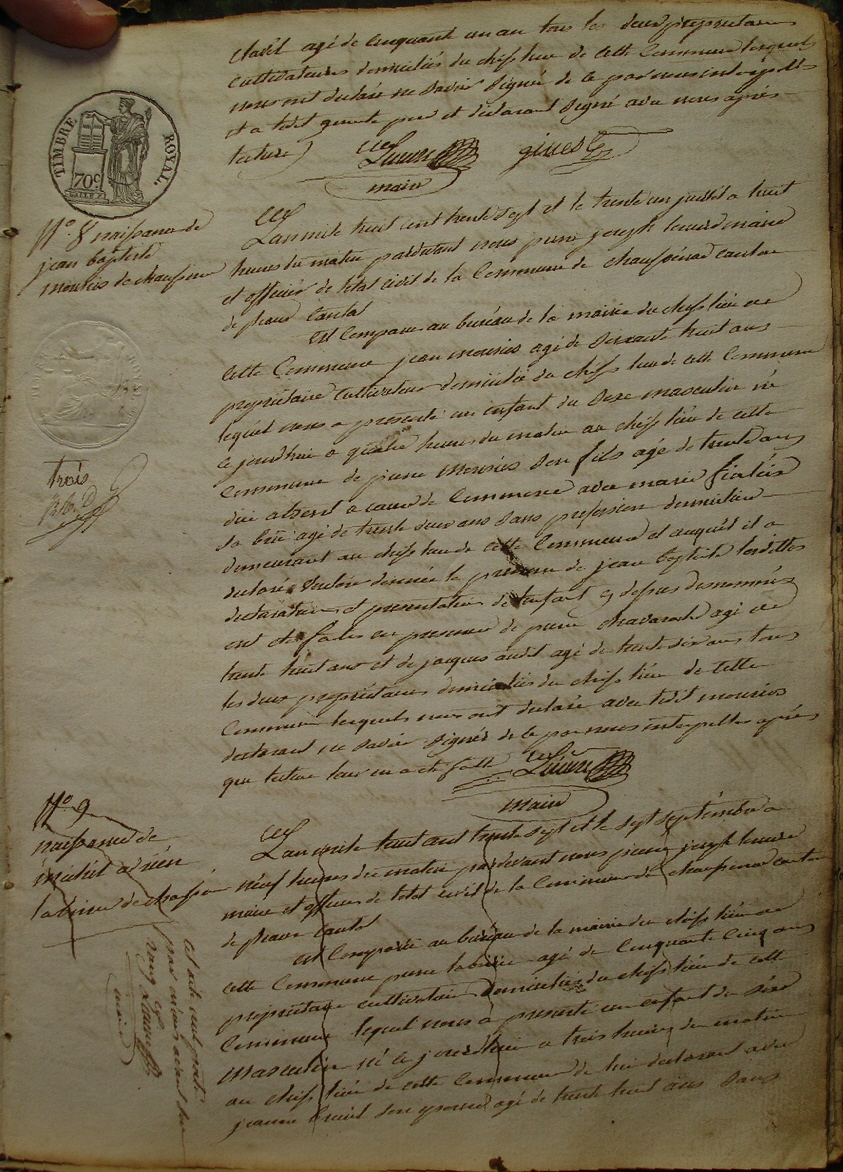 audit agé de Cinquante un ans tous les deux propriétaires
cultivateurs domiciliés du cheff lieu de cette Commune lesquels
nous ont déclaré ne savoir signer de ce par nous interpellés
et a ledit père et déclarant signé avec nous après
lecture
maire
TIMBRE ROYAL
70c
N° 8 naissance de
jean baptiste
mouriès de
L'an mile huit cent trente sept et le trente un juillet a huit
heures du matin pardevant nous pierre joseph maire
et officier de létat civil de la Commune de canton
de cantal
est Comparu au buréau de la mairie du cheff liéu de
cette Commune jean mouriès agé de soixante huit ans
propriétaire cultivateur domicilié du cheff lieu de cette Commune
lequel nous a présenté un enfant du séxe masculin né
ce jourdhui a quatre heures du matin au cheff liéu de cette
Commune de pierre mouriès son fils agé de trente ans
absent a cause de Commerce avec marie
sa brú agé de trente deux ans sans profession domiciliée
demeurant au cheff lieu de cette Commune et auquel il a
declaré vouloir donner le prénom de jean baptiste lesdittes
declaration et présentation de lenfant cy dessus dénommés
ont été faites en présence de pierre chavaroche agé de
trente huit ans et de jacques audit agé de trente six ans tous
les deux propriétaires domiciliés du cheff liéu de cette
Commune lesquels nous ont declaré avec ledit mouriès
declarant ne savoir signer de ce par nous interpellés après
que lecture leur en a été faitte
maire
trois
N° 9
naissance de
michel
de
L'an mile huit cent trente sept et le sept septémbre a
neuf heures du matin pardevant nous pierre joseph
maire et officier de létat civil de la Commune de canton
de cantal
est Comparu au buréau de la mairie du cheff liéu de
cette Commune pierre agé de Cinquante Cinq ans
propriétaire cultivateur domicilié du cheff liéu de cette
Commune lequel nous a présenté un enfant du séxe
Masculin né ce jourdhui a trois heures du matin
au cheff liéu de cette Commune de lui declarant avec
jeanne son epouse agé de trente huit ans sans
maire